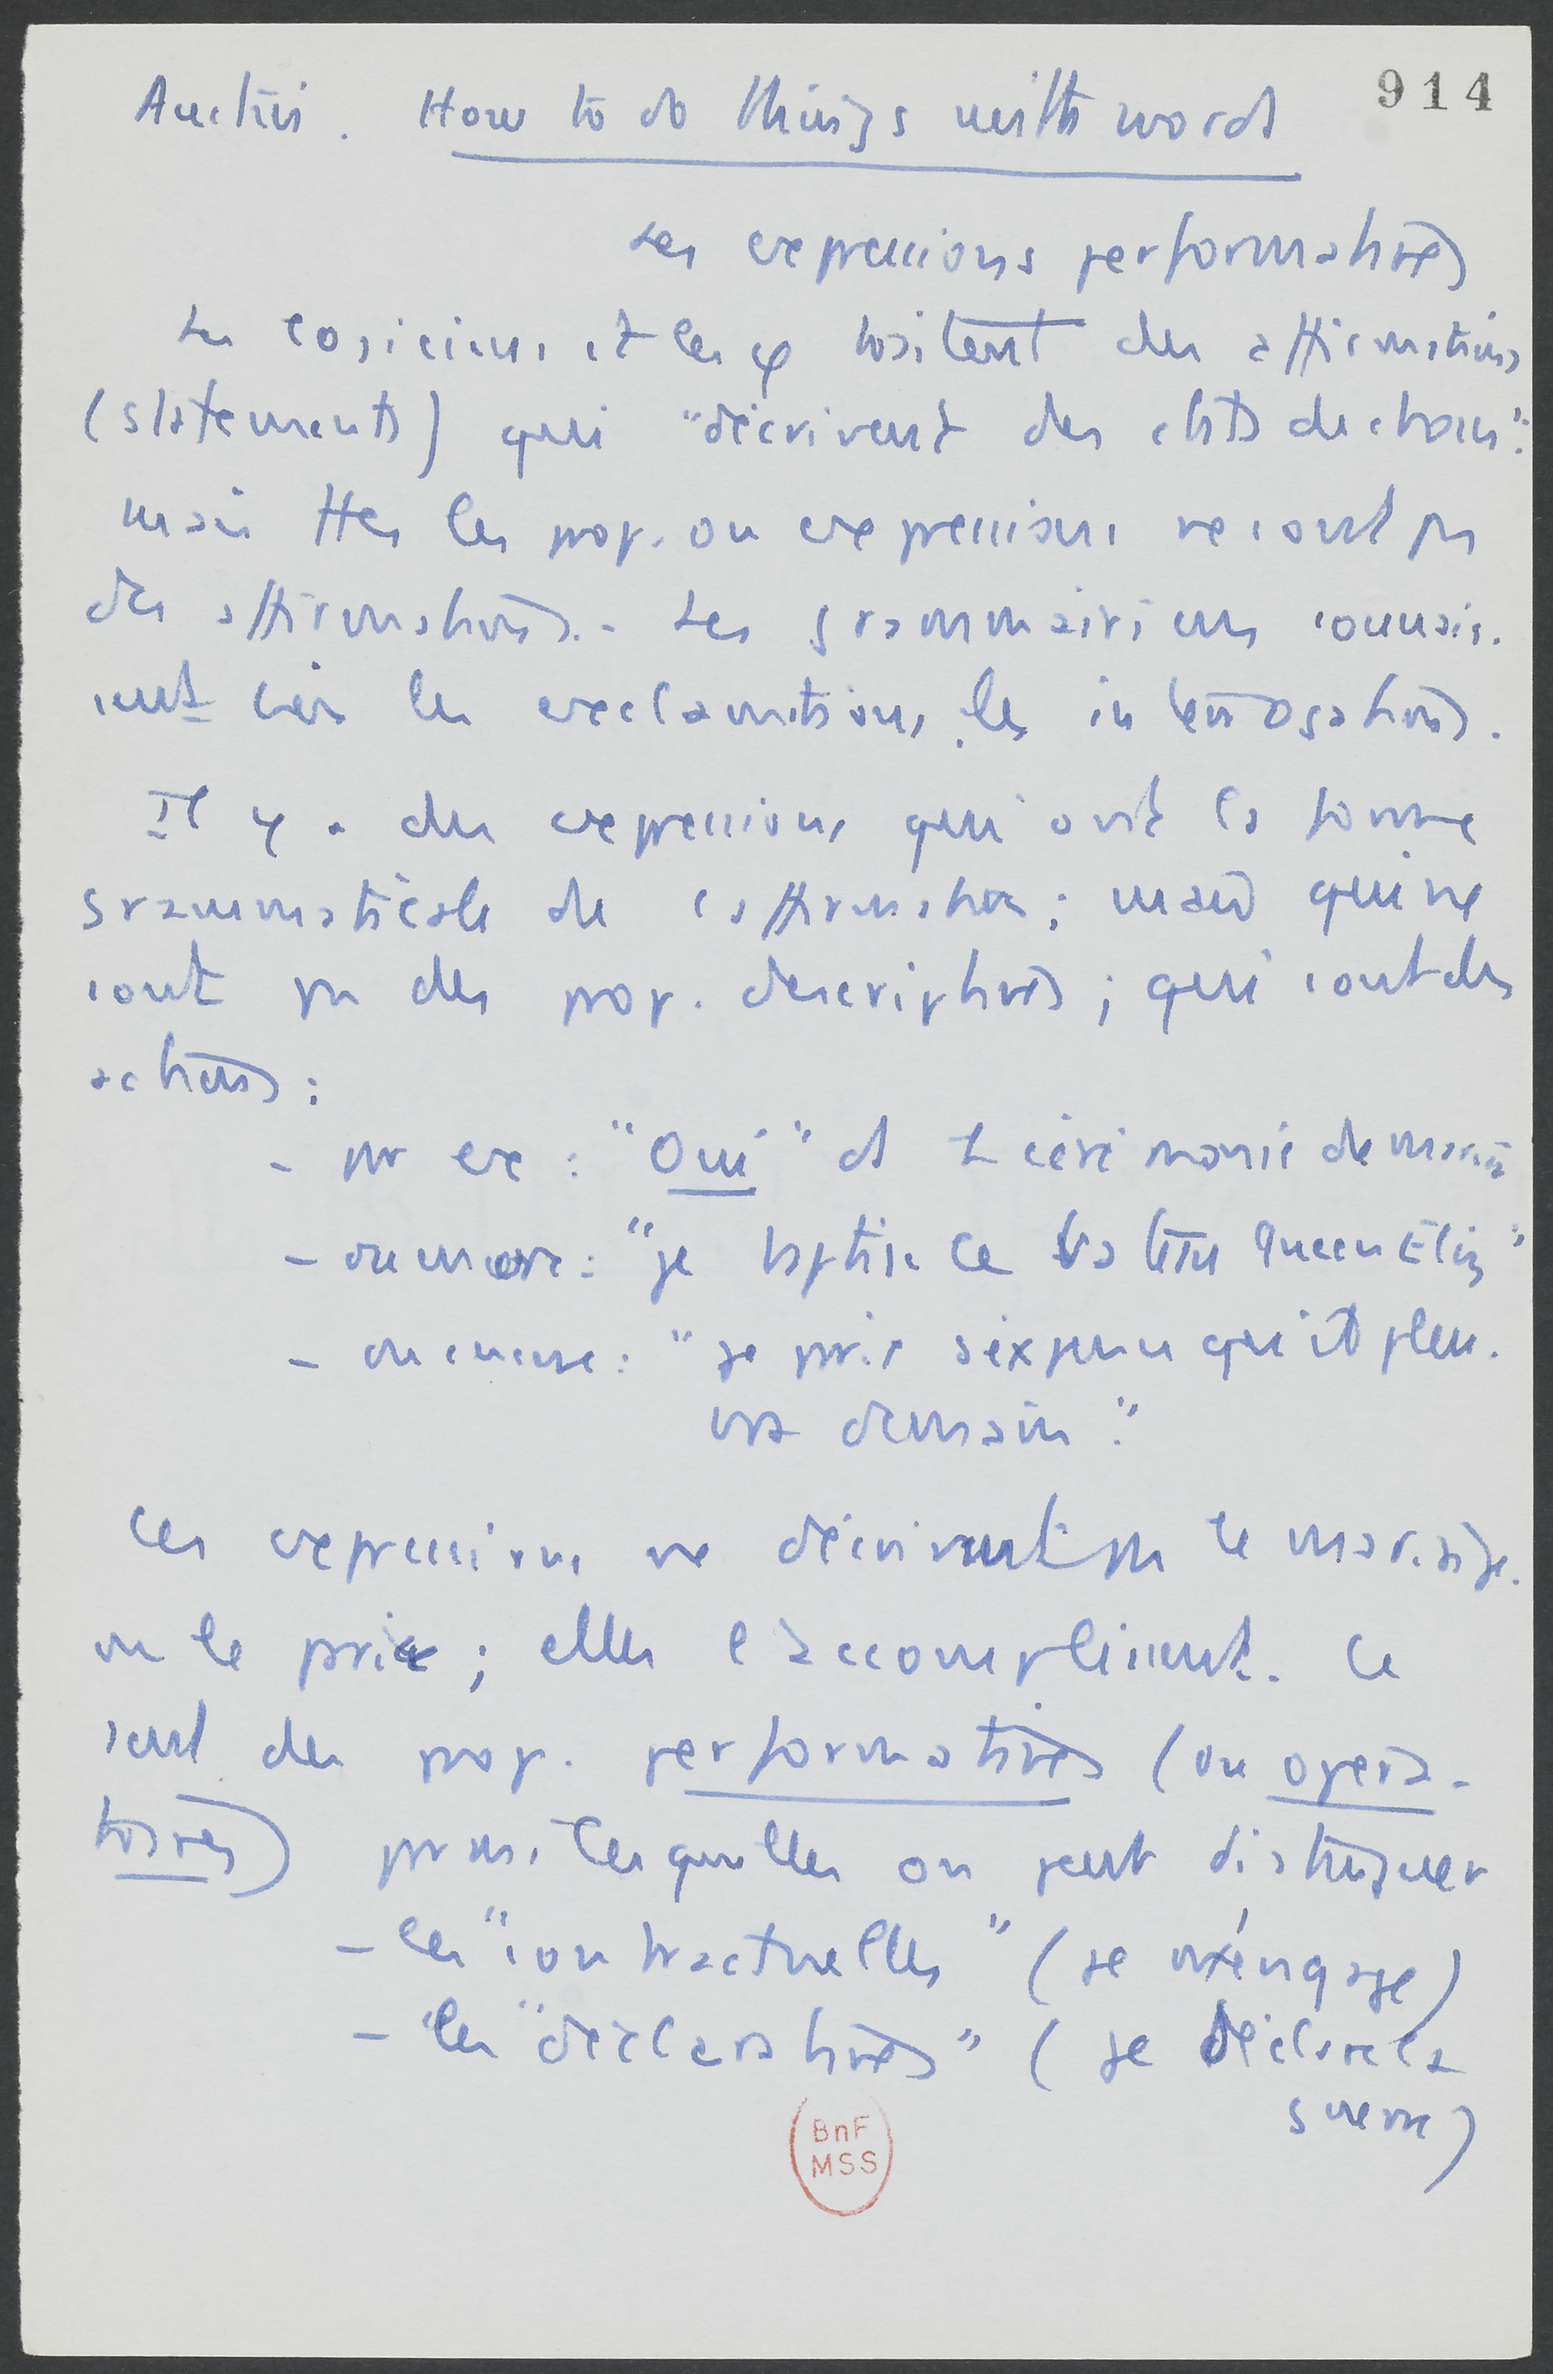 914
Austin. How to do things with words
Les expressions performatives
Les logiciens et les φ traitent des affirmations
(statements) qui "décrivent des états de choses":
mais ttes les prop. ou expressions ne sont pas
des affirmations. - Les grammairiens connais-
sent bien les exclamations, les interrogations.
Il y a des expressions qui ont la forme
grammaticale de l'affirmation; mais qui ne
sont pas des prop. descriptives; qui sont des
actions:
- par ex: "Oui" ds la cérémonie de mariage
- ou encore: "je baptise ce bateau Queen Eliz"
- ou encore: "je parie sixpence qu'il pleu-
vra demain".
Ces expressions ne décrivent pas le mariage
ou le pari; elles l'accomplissent. Ce
sont des prop. performatives (ou opéra-
toires) parmi lesquelles on peut distinguer
- les "contractuelles" (je m'engage)
- les "déclaratives" (je déclare la
guerre)
BnF
MSS